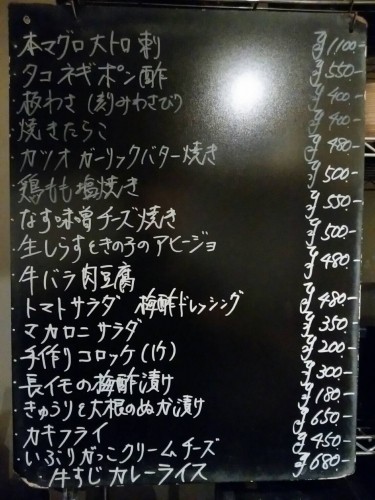 ・本マグロ大トロ刺 ¥1100-
・タコネギポン酢 ¥550-
・板わさ(刻みわさび) ¥400-
・焼きたらこ ¥400-
・カツオガーリックバター焼き ¥480-
・鶏もも塩焼き ¥500-
・なす味噌チーズ焼き ¥550-
・生しらすときの子のアヒージョ ¥500-
・牛バラ肉豆腐 ¥480-
・トマトサラダ 梅酢ドレッシング ¥480-
・マカロニサラダ ¥350-
・手作りコロッケ(1ケ) ¥200-
・長イモの梅酢漬け ¥300-
・きゅうりと大根のぬか漬け ¥180-
・カキフライ ¥650-
・いぶりがっこクリームチーズ ¥450-
・牛すじカレーライス ¥680-